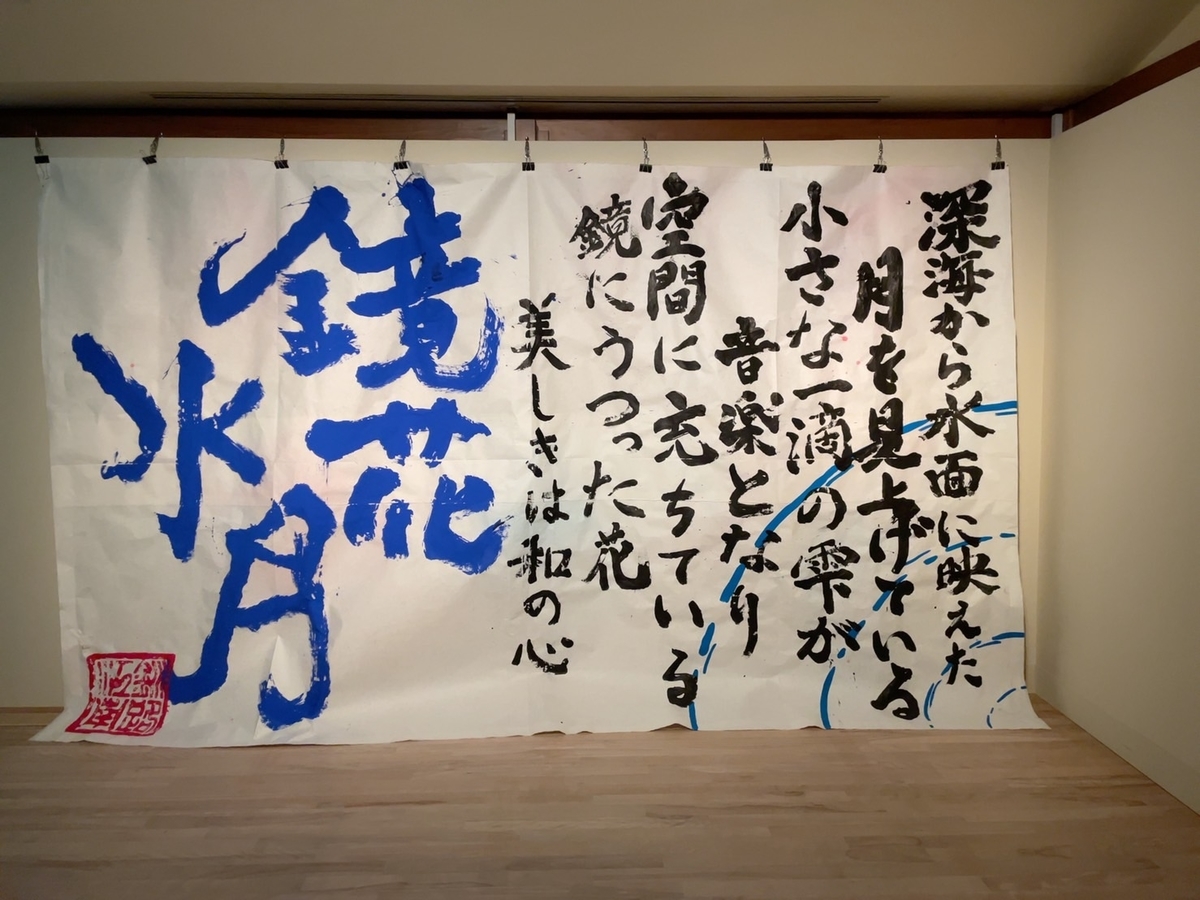 深海から水面に映えた
月を見上げている
小さな一滴の雫が
音楽となり
空間に充ちている
鏡にうつった花
美しきは和の心
鏡花
水月